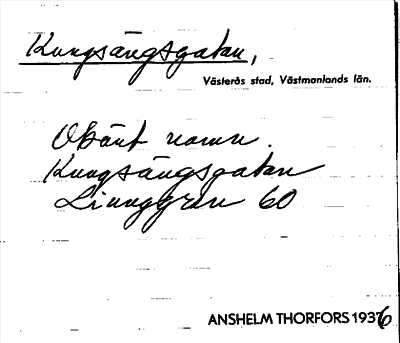 Kungsängsgatan,
Västerås stad, Västmanlands län.
Okänt namn.
Kungsängsgatan
Ljunggren 60
ANSHELM THORFORS 1936